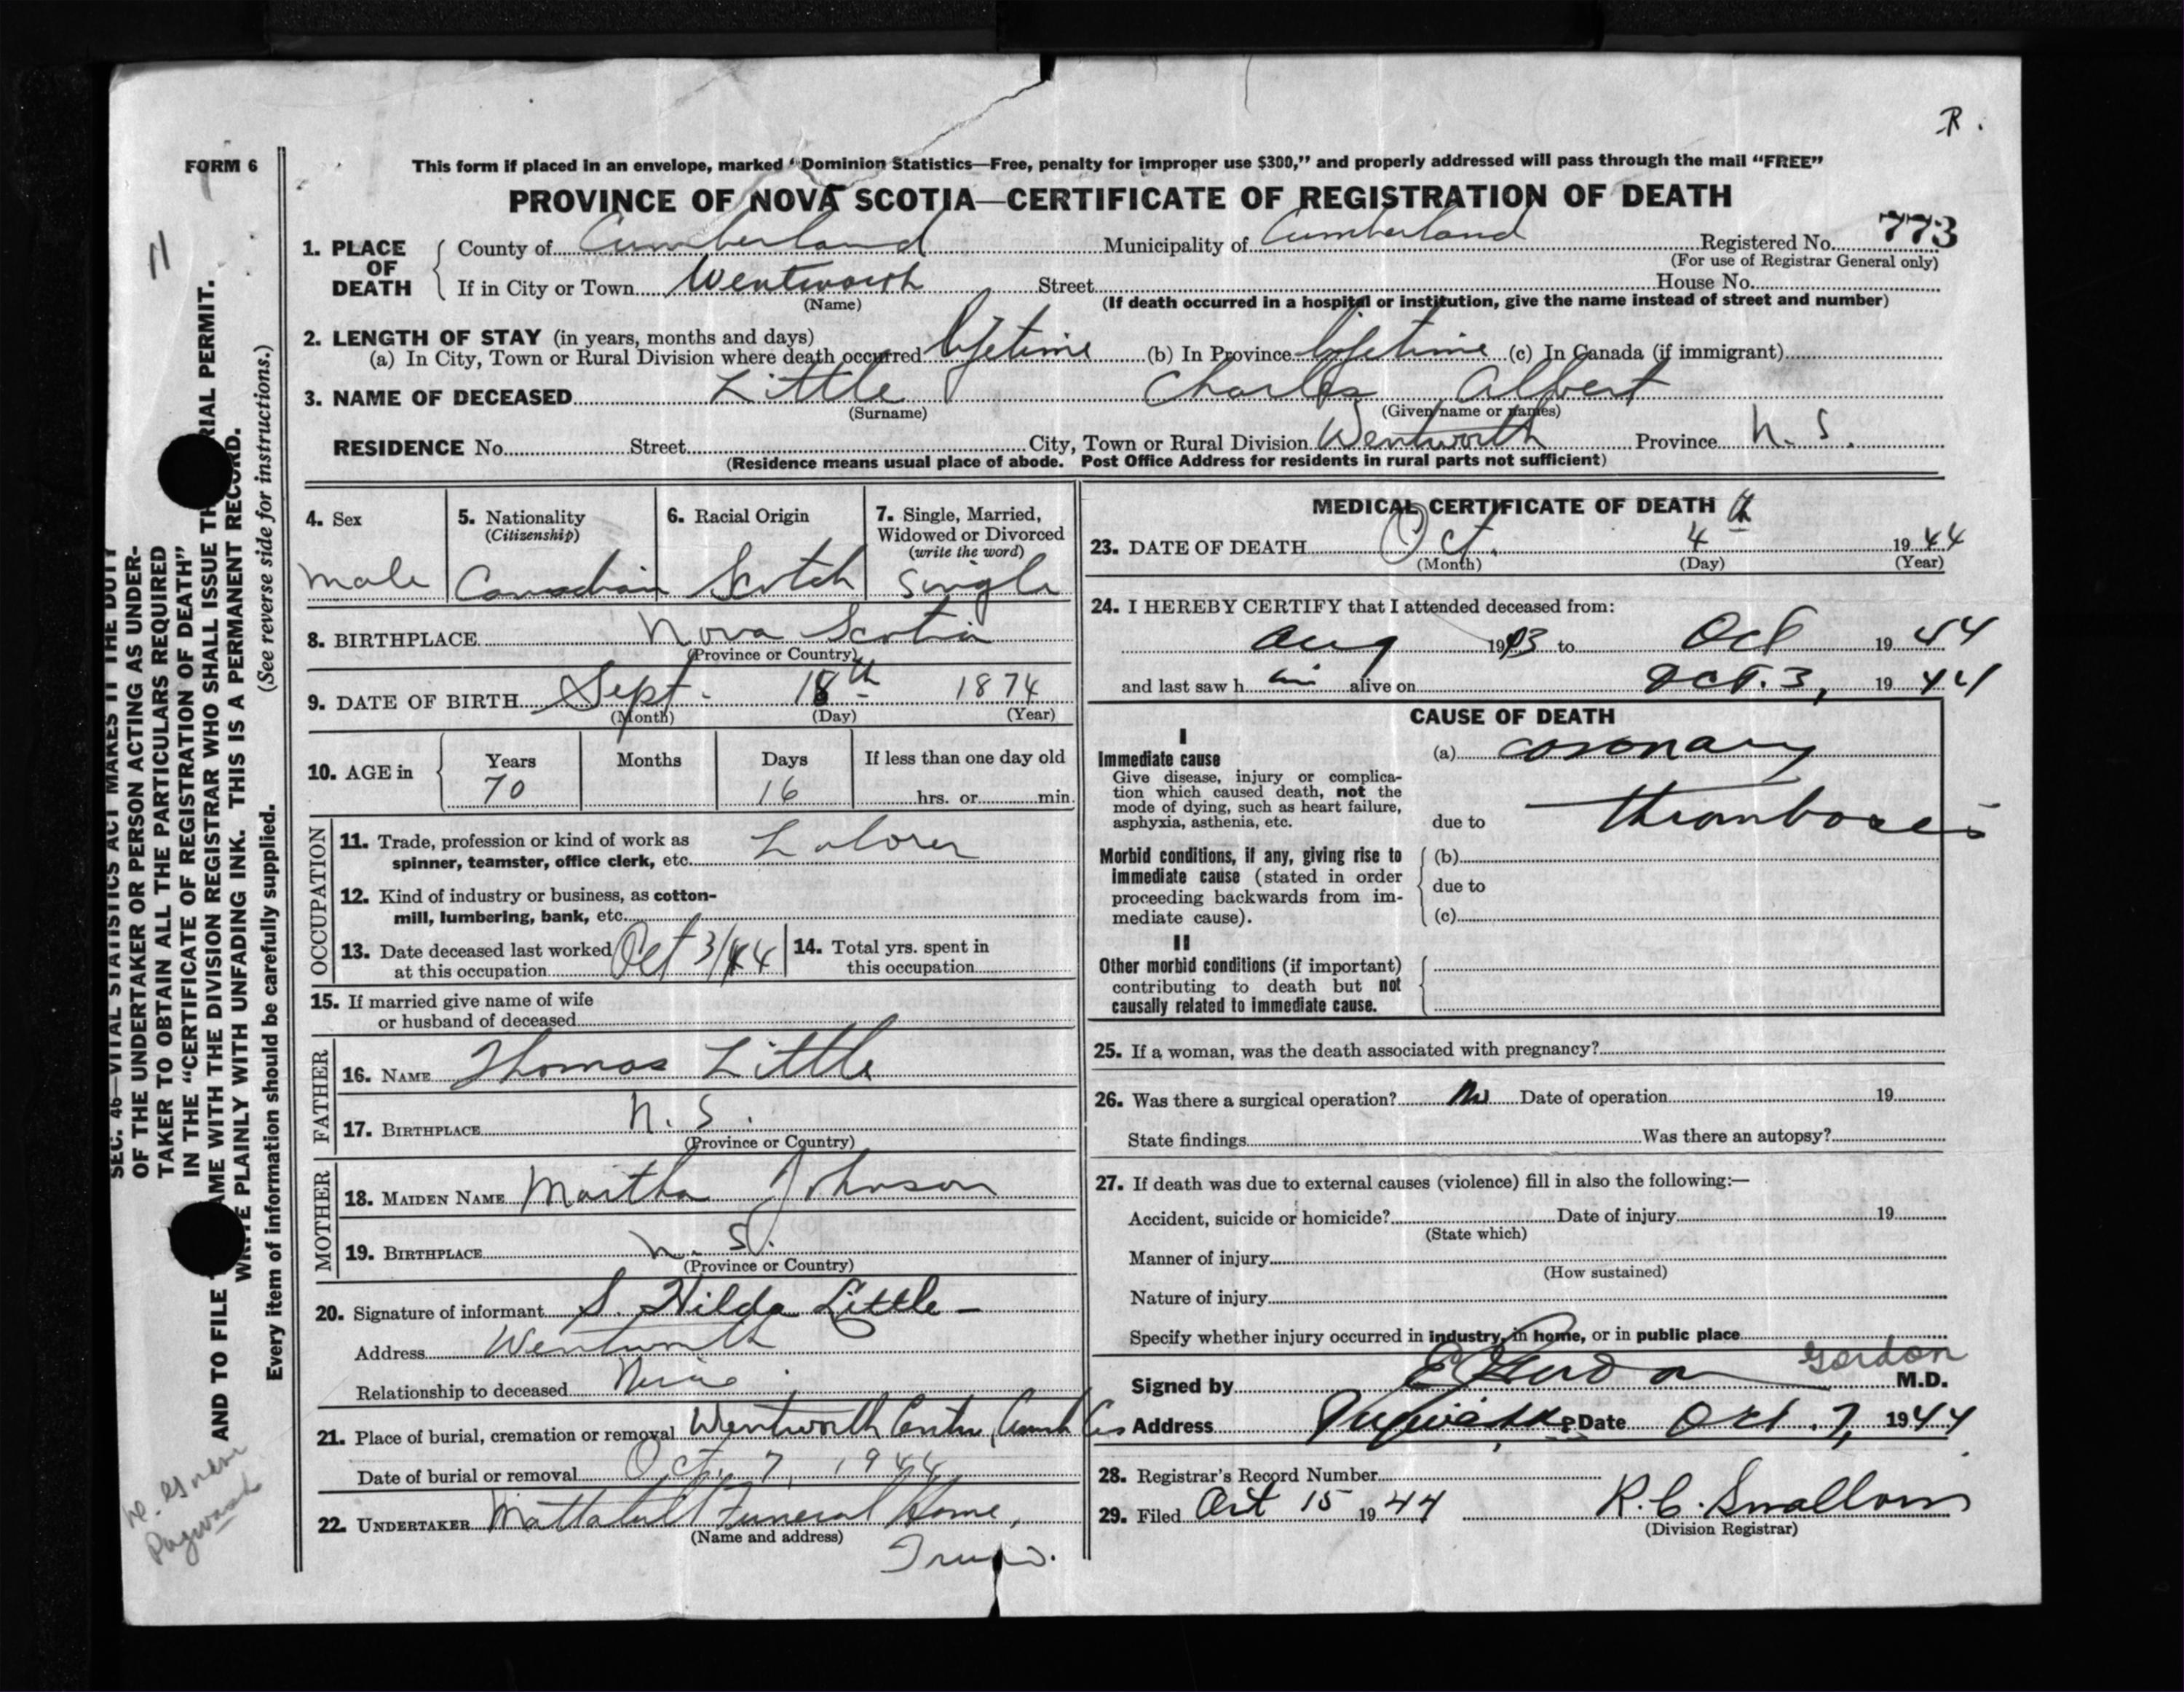 R.
FORM 6
This form if placed in an envelope, marked "Dominion Statistics—Free, penalty for improper use $300," and properly addressed will pass through the mail "FREE"
PROVINCE OF NOVA SCOTIA—CERTIFICATE OF REGISTRATION OF DEATH
1. PLACE OF DEATH County of Cumberland Municipality of Cumberland Registered No. 773
(For use of Registrar General only)
If in City or Town Wentworth Street House No.
(Name) (If death occurred in a hospital or institution, give the name instead of street and number)
2. LENGTH OF STAY (in years, months and days)
(a) In City, Town or Rural Division where death occurred lifetime (b) In Province lifetime (c) In Canada (if immigrant)
3. NAME OF DECEASED Little Charles Albert
(Surname) (Given name or names)
RESIDENCE No. Street City, Town or Rural Division Wentworth Province N. S.
(Residence means usual place of abode. Post Office Address for residents in rural parts not sufficient)
4. Sex 5. Nationality 6. Racial Origin 7. Single, Married,
(Citizenship) Widowed or Divorced
(write the word)
male Canadian Scotch single
8. BIRTHPLACE Nova Scotia
(Province or Country)
9. DATE OF BIRTH Sept. 18th 1874
(Month) (Day) (Year)
10. AGE in Years Months Days If less than one day old
70 16 hrs. or min.
OCCUPATION
11. Trade, profession or kind of work as
spinner, teamster, office clerk, etc. Laborer
12. Kind of industry or business, as cotton-
mill, lumbering, bank, etc.
13. Date deceased last worked
at this occupation Oct 3/44
14. Total yrs. spent in
this occupation
15. If married give name of wife
or husband of deceased
FATHER
16. NAME Thomas Little
17. BIRTHPLACE N. S.
(Province or Country)
MOTHER
18. MAIDEN NAME Martha Johnson
19. BIRTHPLACE N. S.
(Province or Country)
20. Signature of informant S. Hilda Little
Address Wentworth
Relationship to deceased Niece
21. Place of burial, cremation or removal Wentworth Centre, Cumb Co
Date of burial or removal Oct. 7, 1944
22. UNDERTAKER Mattatall Funeral Home,
(Name and address)
Truro.
MEDICAL CERTIFICATE OF DEATH
23. DATE OF DEATH Oct. 4th 1944
(Month) (Day) (Year)
24. I HEREBY CERTIFY that I attended deceased from:
Aug 1943 to Oct 1944
and last saw him alive on Oct. 3, 1944
CAUSE OF DEATH
I
Immediate cause (a) coronary
Give disease, injury or complica-
tion which caused death, not the
mode of dying, such as heart failure,
asphyxia, asthenia, etc. due to thrombosis
Morbid conditions, if any, giving rise to (b)
immediate cause (stated in order due to
proceeding backwards from im-
mediate cause). (c)
II
Other morbid conditions (if important)
contributing to death but not
causally related to immediate cause.
25. If a woman, was the death associated with pregnancy?
26. Was there a surgical operation? No Date of operation 19
State findings Was there an autopsy?
27. If death was due to external causes (violence) fill in also the following:—
Accident, suicide or homicide? Date of injury 19
(State which)
Manner of injury
(How sustained)
Nature of injury
Specify whether injury occurred in industry, in home, or in public place
Gordon
Signed by Gordon M.D.
Address Pugwash Date Oct. 7, 1944
28. Registrar's Record Number
29. Filed Oct 15 1944 R. C. Smallows
(Division Registrar)
SEC. 46—VITAL STATISTICS ACT MAKES IT THE DUTY
OF THE UNDERTAKER OR PERSON ACTING AS UNDER-
TAKER TO OBTAIN ALL THE PARTICULARS REQUIRED
IN THE "CERTIFICATE OF REGISTRATION OF DEATH"
AND TO FILE AME WITH THE DIVISION REGISTRAR WHO SHALL ISSUE TH RIAL PERMIT.
WRITE PLAINLY WITH UNFADING INK. THIS IS A PERMANENT RECORD.
Every item of information should be carefully supplied. (See reverse side for instructions.)
Pugwash